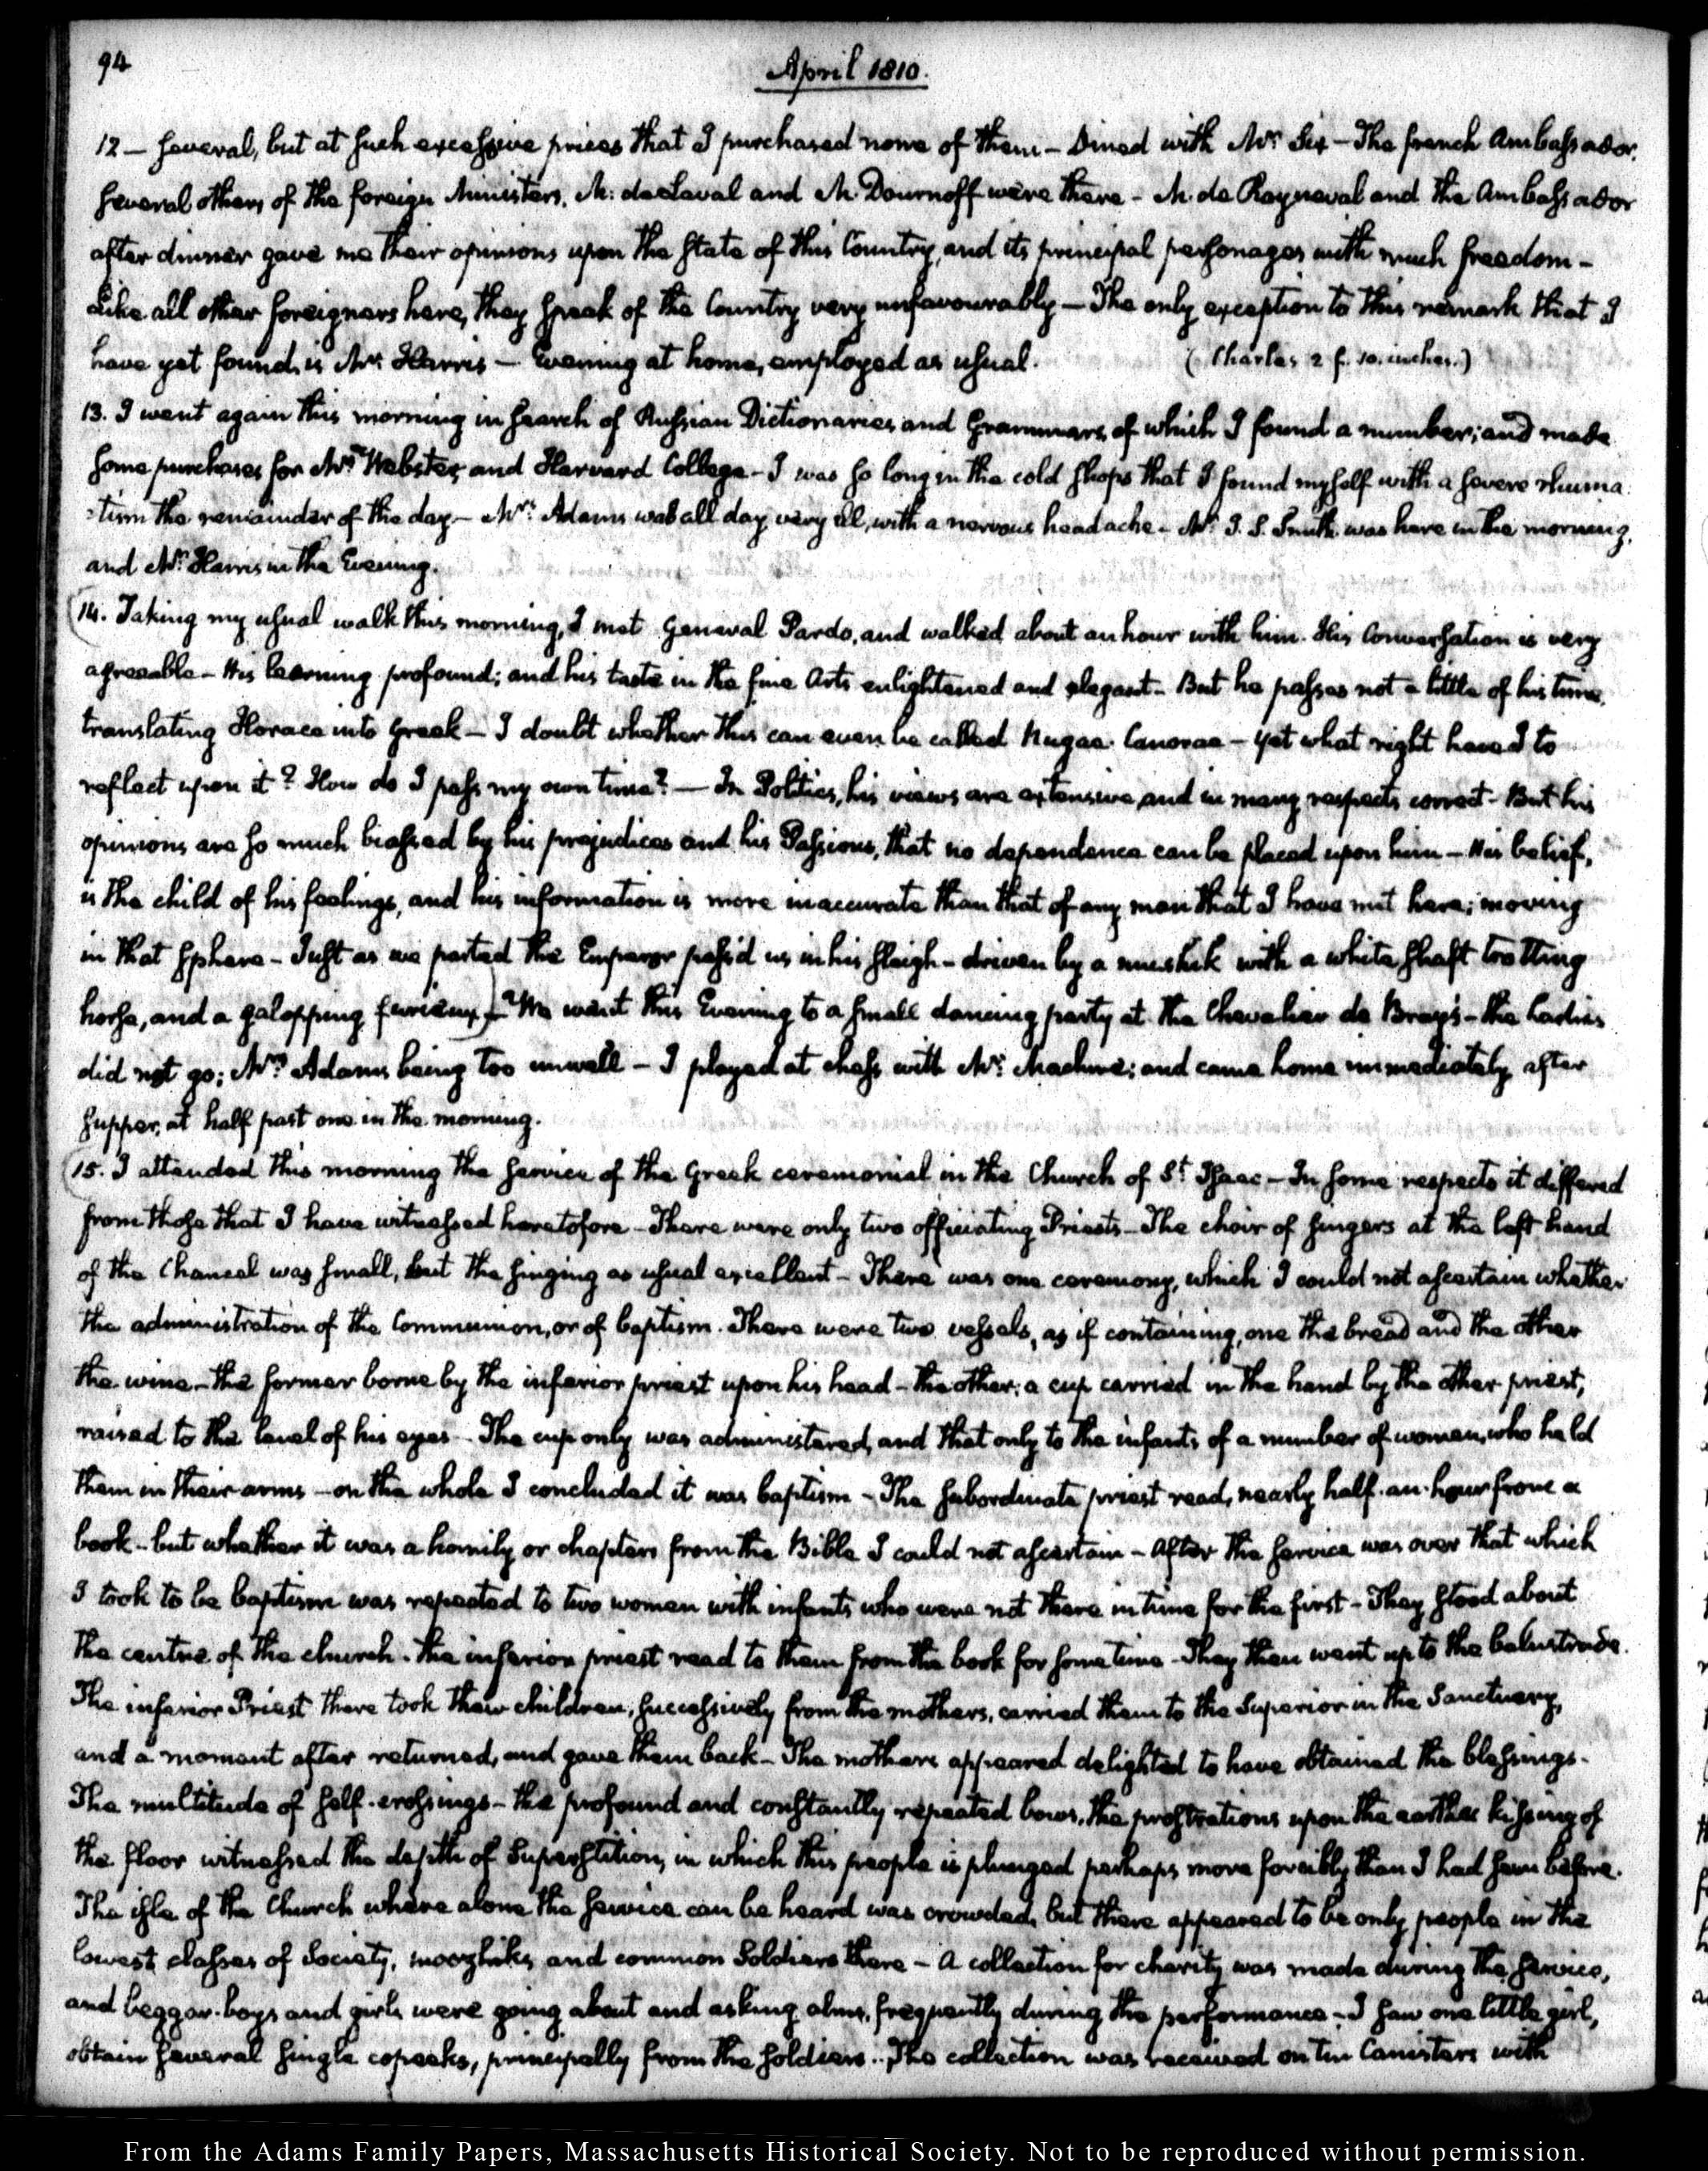 94
April 1810.
12 — several, but at such excessive prices that I purchased none of them — Dined with Mr: Six — The french Ambassador.
several others of the foreign Ministers. M: de Laval and M. Dournoff were there — M. de Rayneval and the Ambassador
after dinner gave me their opinions upon the State of this Country, and its principal personages with much freedom —
Like all other foreigners here, they speak of the Country very unfavourably — The only exception to this remark that I
have yet found, is Mr: Harris — Evening at home, employed as usual. (Charles 2 f. 10. inches.)
13. I went again this morning in search of Russian Dictionaries and Grammars, of which I found a number; and made
some purchases for Mr: Webster, and Harvard College — I was so long in the cold shops that I found myself with a severe rheuma:
:tism the remainder of the day — Mrs: Adams was all day very ill, with a nervous head ache — Mr: J. S. Smith was here in the morning,
and Mr: Harris in the Evening.
14. Taking my usual walk this morning, I met General Pardo, and walked about an hour with him. His Conversation is very
agreeable — His learning profound; and his taste in the fine Arts enlightened and elegant — But he passes not a little of his time,
translating Horace into Greek — I doubt whether this can even be called Nugae Canorae — yet what right have I to
reflect upon it? How do I pass my own time? — In Politics, his views are extensive, and in many respects correct — But his
opinions are so much biassed by his prejudices and his Passions, that no dependence can be placed upon him — His belief,
is the child of his feelings, and his information is more inaccurate than that of any man that I have met here; moving
in that sphere — Just as we parted the Emperor pass'd us in his sleigh — driven by a mushik with a white shaft trotting
horse, and a galopping — We went this Evening to a small dancing party at the Chevalier de Bray's — the Ladies
did not go; Mrs: Adams being too unwell — I played at chess with Mr: and came home immediately after
supper, at half past one in the morning.
15. I attended this morning the service of the Greek ceremonial in the Church of St. Isaac — In some respects it differed
from those that I have witnessed heretofore — There were only two officiating Priests — The choir of singers at the left hand
of the Chancel was small, but the singing as usual excellent — There was one ceremony, which I could not ascertain whether
the administration of the Communion, or of baptism. There were two vessels, as if containing, one the bread and the other
the wine — the former borne by the inferior priest upon his head — the other, a cup carried in the hand by the other priest,
raised to the level of his eyes — The cup only was administered, and that only to the infants of a number of women, who held
them in their arms — on the whole I concluded it was baptism — The subordinate priest read, nearly half-an-hour from a
book — but whether it was a homily or chapters from the Bible I could not ascertain — After the service was over that which
I took to be baptism was repeated to two women with infants who were not there in time for the first — They stood about
the centre of the church — the inferior priest read to them from the book for some time — They then went up to the balustrade.
The inferior Priest there took their children, successively from the mothers, carried them to the Superior in the Sanctuary,
and a moment after returned, and gave them back — The mothers appeared delighted to have obtained the blessings —
The multitude of self-crossings — the profound and constantly repeated bows, the prostrations upon the earth & kissing of
the floor witnessed the depth of Superstition, in which this people is plunged perhaps more forcibly than I had seen before.
The isle of the Church where alone the service can be heard was crowded, but there appeared to be only people in the
lowest classes of Society, mooghiks, and common Soldiers there — A collection for charity was made during the service,
and beggar-boys and girls were going about and asking alms, frequently during the performance — I saw one little girl,
obtain several single copecks, principally from the soldiers — The collection was received on tin Canisters with
From the Adams Family Papers, Massachusetts Historical Society. Not to be reproduced without permission.